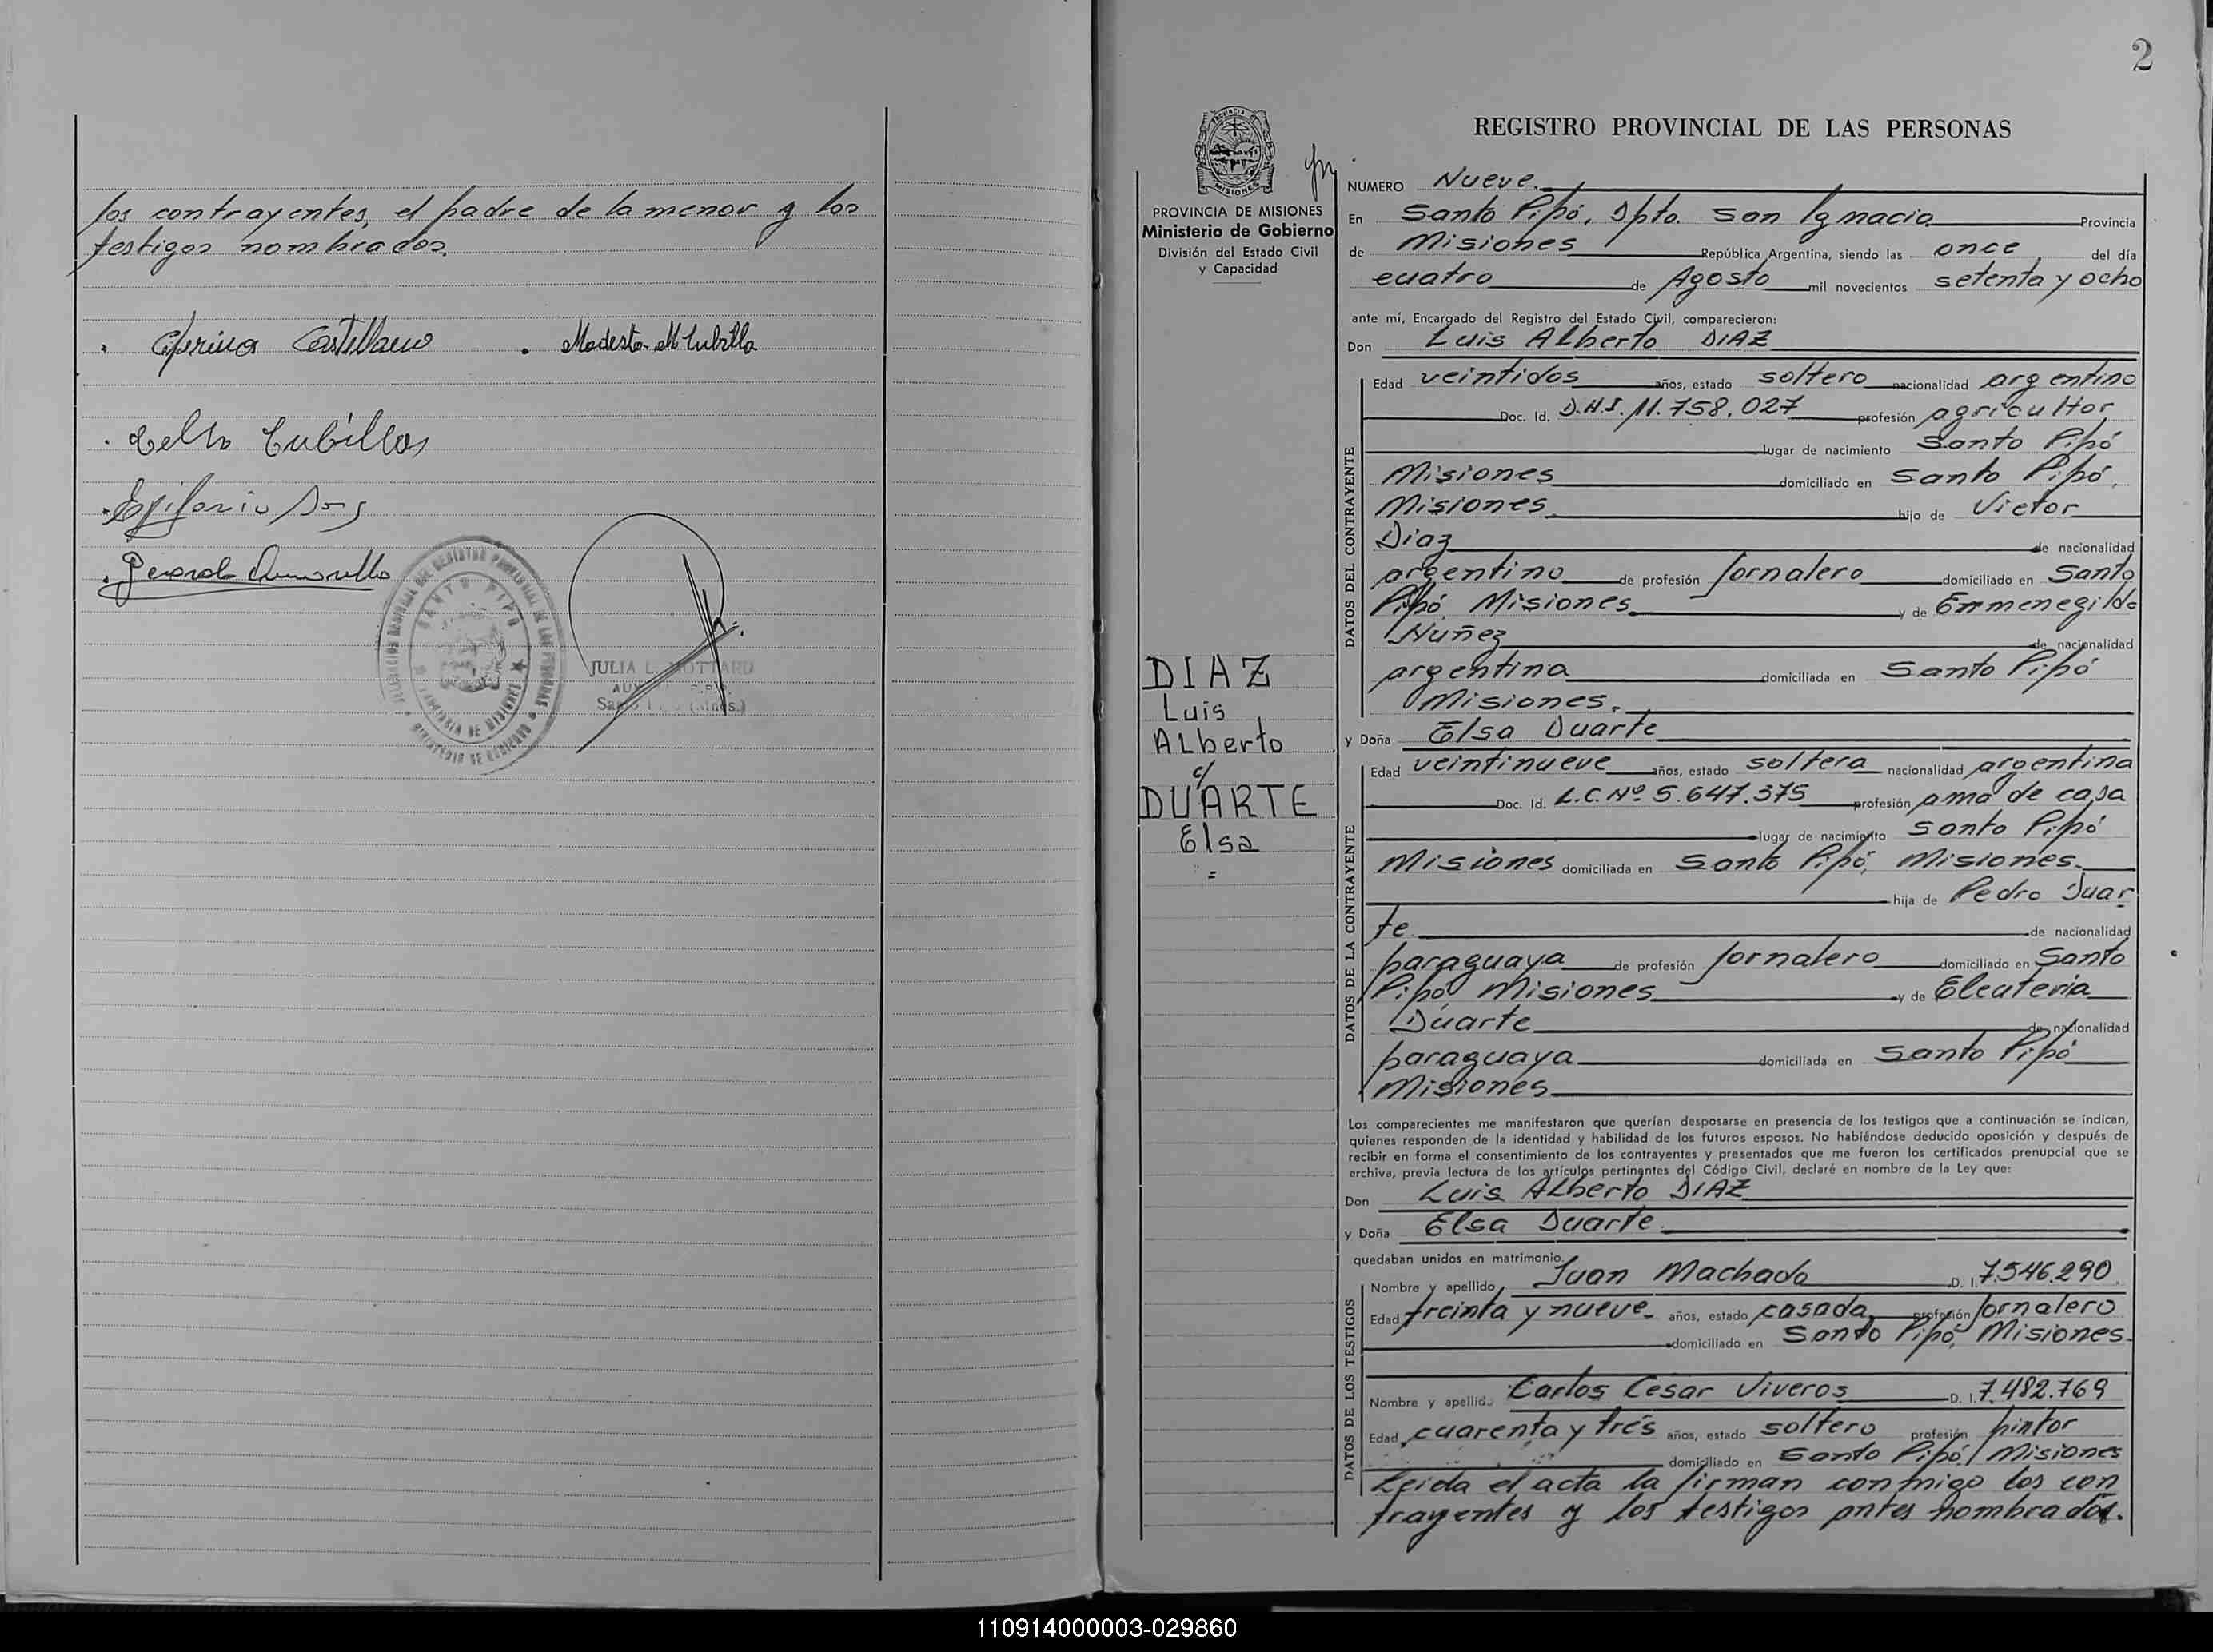 los contrayentes, el padre de la menor y los
testigos nombrados.
Castellano
Modesto M Cubilla
Celso Cubillos
Epifanio
REGISTRO PROVINCIAL DE LAS PERSONAS
SANTO PIPO
JULIA L. MOTTARD
2
REGISTRO PROVINCIAL DE LAS PERSONAS
MISIONES
PROVINCIA DE MISIONES
Ministerio de Gobierno
División del Estado Civil
y Capacidad
DIAZ
Luis
Alberto
c/
DUARTE
Elsa
=
NUMERO Nueve.
En Santo Pipó, Dpto. San Ignacio Provincia
de Misiones República Argentina, siendo las once del día
cuatro de Agosto mil novecientos setenta y ocho
ante mí, Encargado del Registro del Estado Civil, comparecieron:
Don Luis Alberto DIAZ
DATOS DEL CONTRAYENTE
Edad veintidos años, estado soltero nacionalidad argentino
Doc. Id. D.N.I. 11.758.027 profesión agricultor
lugar de nacimiento Santo Pipó
Misiones domiciliado en Santo Pipó,
Misiones hijo de Victor
Diaz de nacionalidad
argentino de profesión Jornalero domiciliado en Santo
Pipó Misiones y de Emmenegilda
Nuñez de nacionalidad
argentina domiciliada en Santo Pipó
Misiones.
y Doña Elsa Duarte
DATOS DE LA CONTRAYENTE
Edad veintinueve años, estado soltera nacionalidad argentina
Doc. Id. L.C. Nº 5.647.375 profesión ama de casa
lugar de nacimiento Santo Pipó
Misiones domiciliada en Santo Pipó, Misiones
hija de Pedro Duar
te de nacionalidad
paraguaya de profesión Jornalero domiciliado en Santo
Pipó Misiones y de Eleuteria
Duarte de nacionalidad
paraguaya domiciliada en Santo Pipó
Misiones
Los comparecientes me manifestaron que querían desposarse en presencia de los testigos que a continuación se indican,
quienes responden de la identidad y habilidad de los futuros esposos. No habiéndose deducido oposición y después de
recibir en forma el consentimiento de los contrayentes y presentados que me fueron los certificados prenupcial que se
archiva, previa lectura de los artículos pertinentes del Código Civil, declaré en nombre de la Ley que:
Don Luis Alberto DIAZ
y Doña Elsa Duarte
quedaban unidos en matrimonio.
DATOS DE LOS TESTIGOS
Nombre y apellido Juan Machado D. I. 7.546.290
Edad treinta y nueve años, estado casada profesión Jornalero
domiciliado en Santo Pipó, Misiones
Nombre y apellido Carlos Cesar Viveros D. I. 7.482.769
Edad cuarenta y trés años, estado soltero profesión pintor
domiciliado en Santo Pipó, Misiones
Leida el acta la firman conmigo los con
trayentes y los testigos antes nombrados.
110914000003-029860